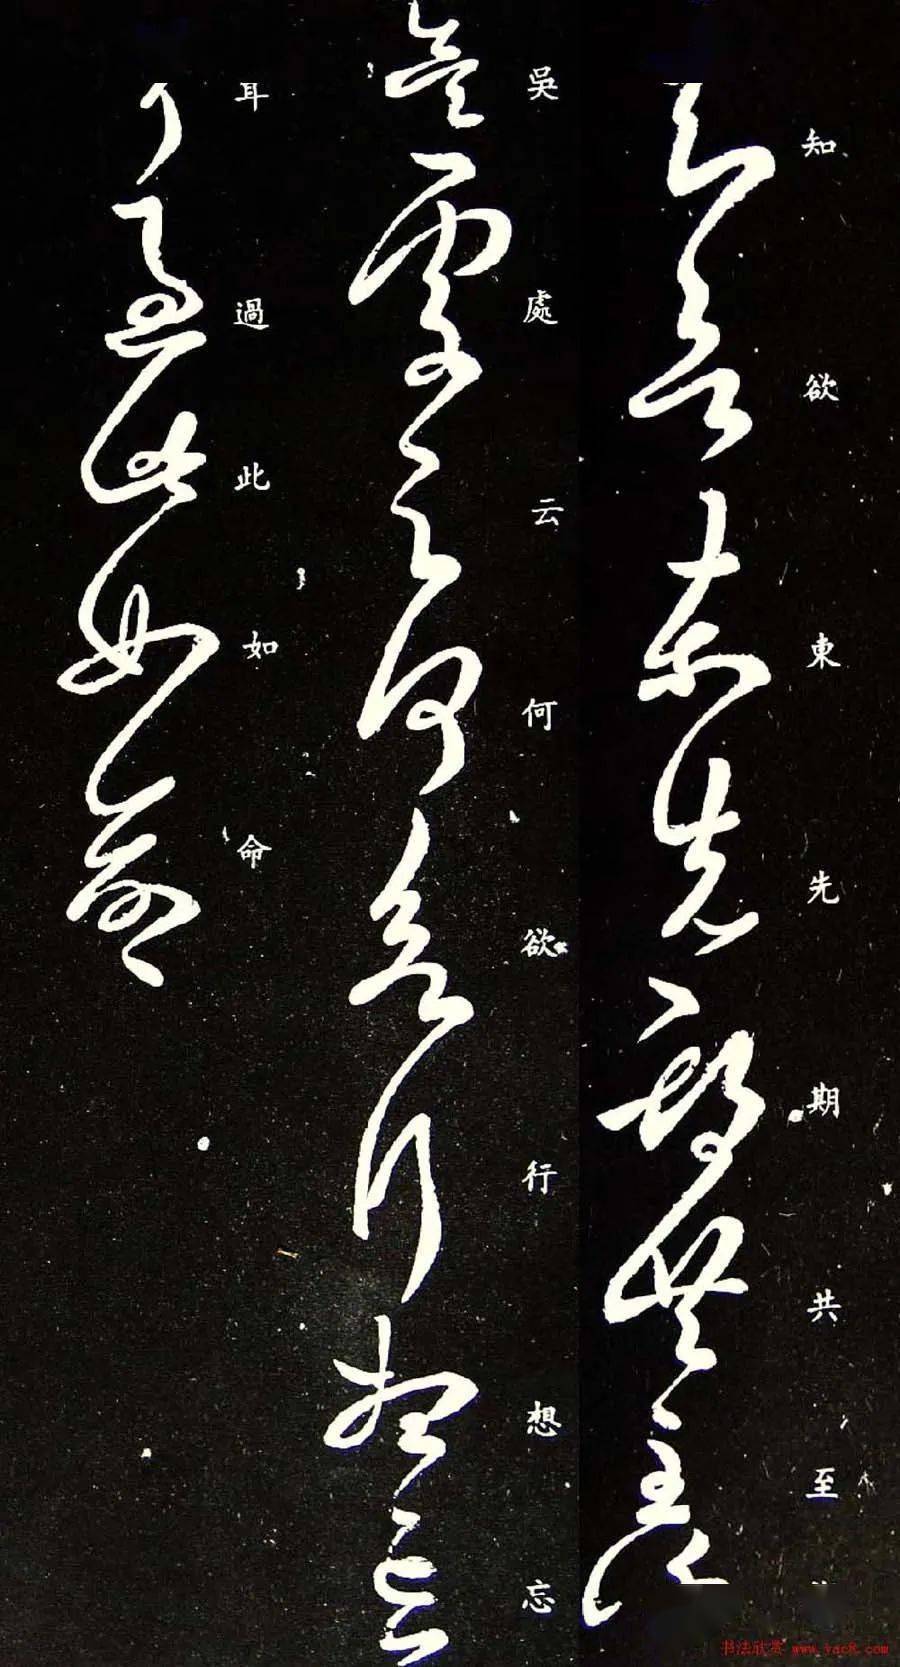 知欲東先期共至
吳處云何欲行想忘
耳過此如命
书法欣赏 www.yac8.com